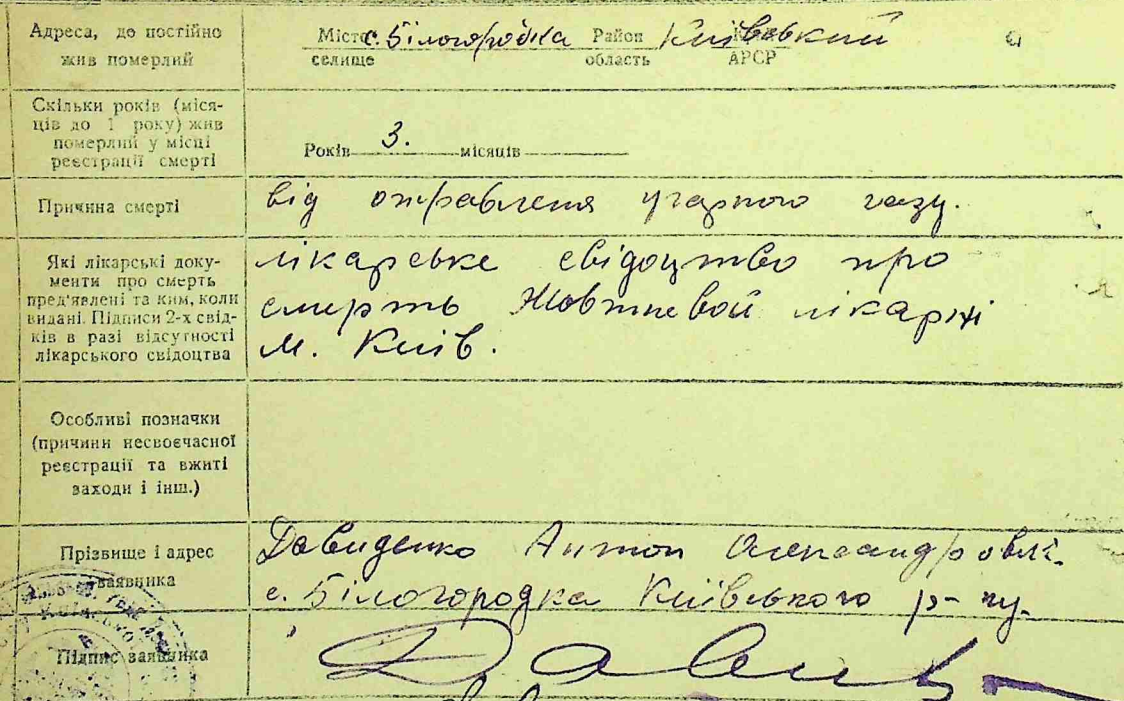 Адреса, де постійно
жив померлий
Місто с. Білогородка Район Київський
селище область АРСР
Скільки років (міся-
ців до 1 року) жив
померлий у місці
реєстрації смерті
Років 3. місяців
Причина смерті
від отравленя угарного газу.
Які лікарські доку-
менти про смерть
пред'явлені та ким, коли
видані. Підписи 2-х свід-
ків в разі відсутності
лікарського свідоцтва
лікарське свідоцтво про
смерть Жовтневой лікарні
м. Київ.
Особливі позначки
(причини несвоєчасної
реєстрації та вжиті
заходи і інш.)
Прізвище і адрес
заявника
Давиденко Антон Олександрович
с. Білогородка Київського р-ну.
Підпис заявника